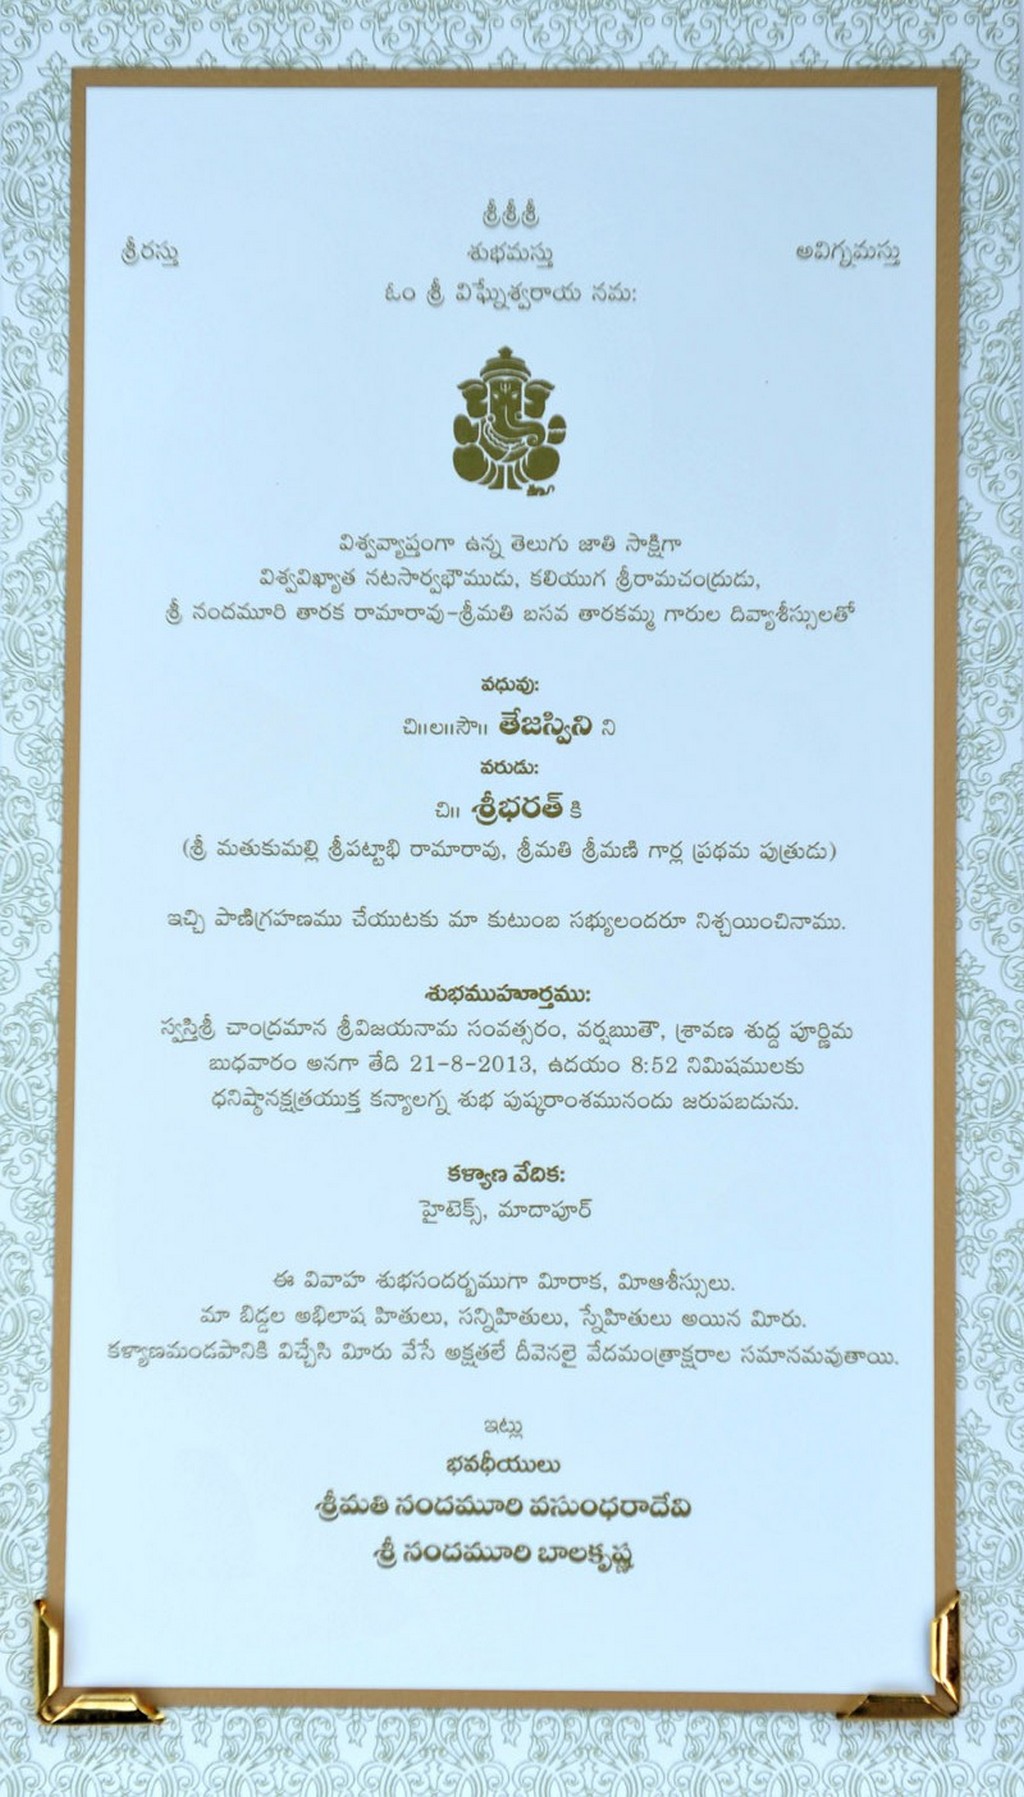 శ్రీశ్రీశ్రీ
శ్రీరస్తు శుభమస్తు అవిగ్నమస్తు
ఓం శ్రీ విఘ్నేశ్వరాయ నమ:
విశ్వవ్యాప్తంగా ఉన్న తెలుగు జాతి సాక్షిగా
విశ్వవిఖ్యాత నటసార్వభౌముడు, కలియుగ శ్రీరామచంద్రుడు,
శ్రీ నందమూరి తారక రామారావు-శ్రీమతి బసవ తారకమ్మ గారుల దివ్యాశీస్సులతో
వధువు:
చి॥ల॥సౌ॥ తేజస్విని ని
వరుడు:
చి॥ శ్రీభరత్ కి
(శ్రీ మతుకుమల్లి శ్రీపట్టాభి రామారావు, శ్రీమతి శ్రీమణి గార్ల ప్రథమ పుత్రుడు)
ఇచ్చి పాణిగ్రహణము చేయుటకు మా కుటుంబ సభ్యులందరూ నిశ్చయించినాము.
శుభముహూర్తము:
స్వస్తిశ్రీ చాంద్రమాన శ్రీవిజయనామ సంవత్సరం, వర్షఋతౌ, శ్రావణ శుద్ద పూర్ణిమ
బుధవారం అనగా తేది 21-8-2013, ఉదయం 8:52 నిమిషములకు
ధనిష్ఠానక్షత్రయుక్త కన్యాలగ్న శుభ పుష్కరాంశమునందు జరుపబడును.
కళ్యాణ వేదిక:
హైటెక్స్, మాదాపూర్
ఈ వివాహ శుభసందర్భముగా మీరాక, మీఆశీస్సులు.
మా బిడ్డల అభిలాష హితులు, సన్నిహితులు, స్నేహితులు అయిన మీరు.
కళ్యాణమండపానికి విచ్చేసి మీరు వేసే అక్షతలే దీవెనలై వేదమంత్రాక్షరాల సమానమవుతాయి.
ఇట్లు
భవధీయులు
శ్రీమతి నందమూరి వసుంధరాదేవి
శ్రీ నందమూరి బాలకృష్ణ